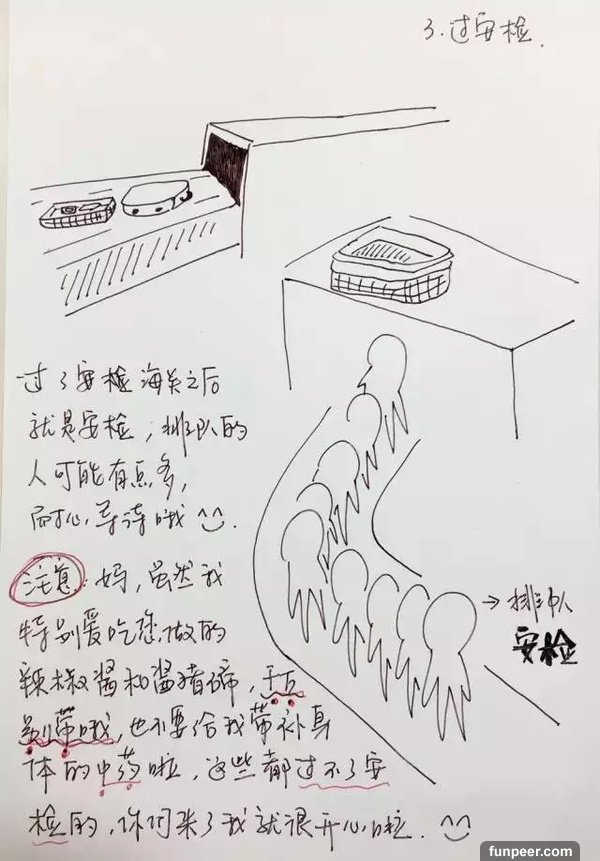 3.过安检.
过了安检海关之后
就是安检,排队的
人可能有点多,
耐心等待哦^_^.
注意:妈,虽然我
特别爱吃您做的
辣椒酱和酱猪蹄,千万
别带哦,也不要给我带补身
体的中药啦,这些都过不了安
检的,你们来了我就很开心啦.^_^
→排队
安检
funpeer.com